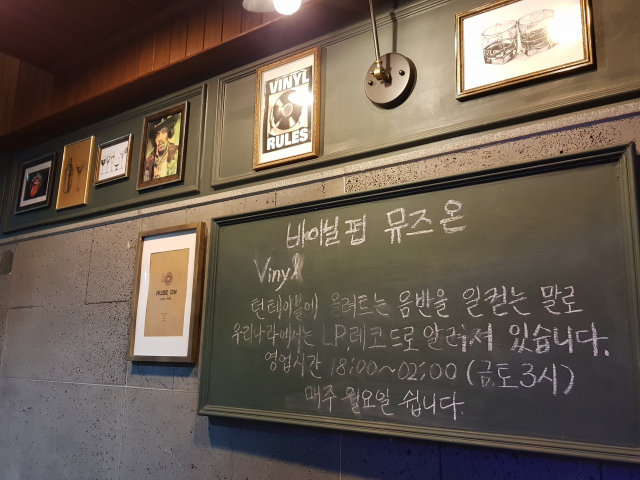 VINYL
RULES
MUSE ON
바이닐 펍 뮤즈온
Vinyl
턴테이블에 올려트는 음반을 일컫는 말로
우리나라에서는 LP레코드로 알려져 있습니다.
영업시간 18:00~02:00 (금토3시)
매주 월요일 쉽니다.